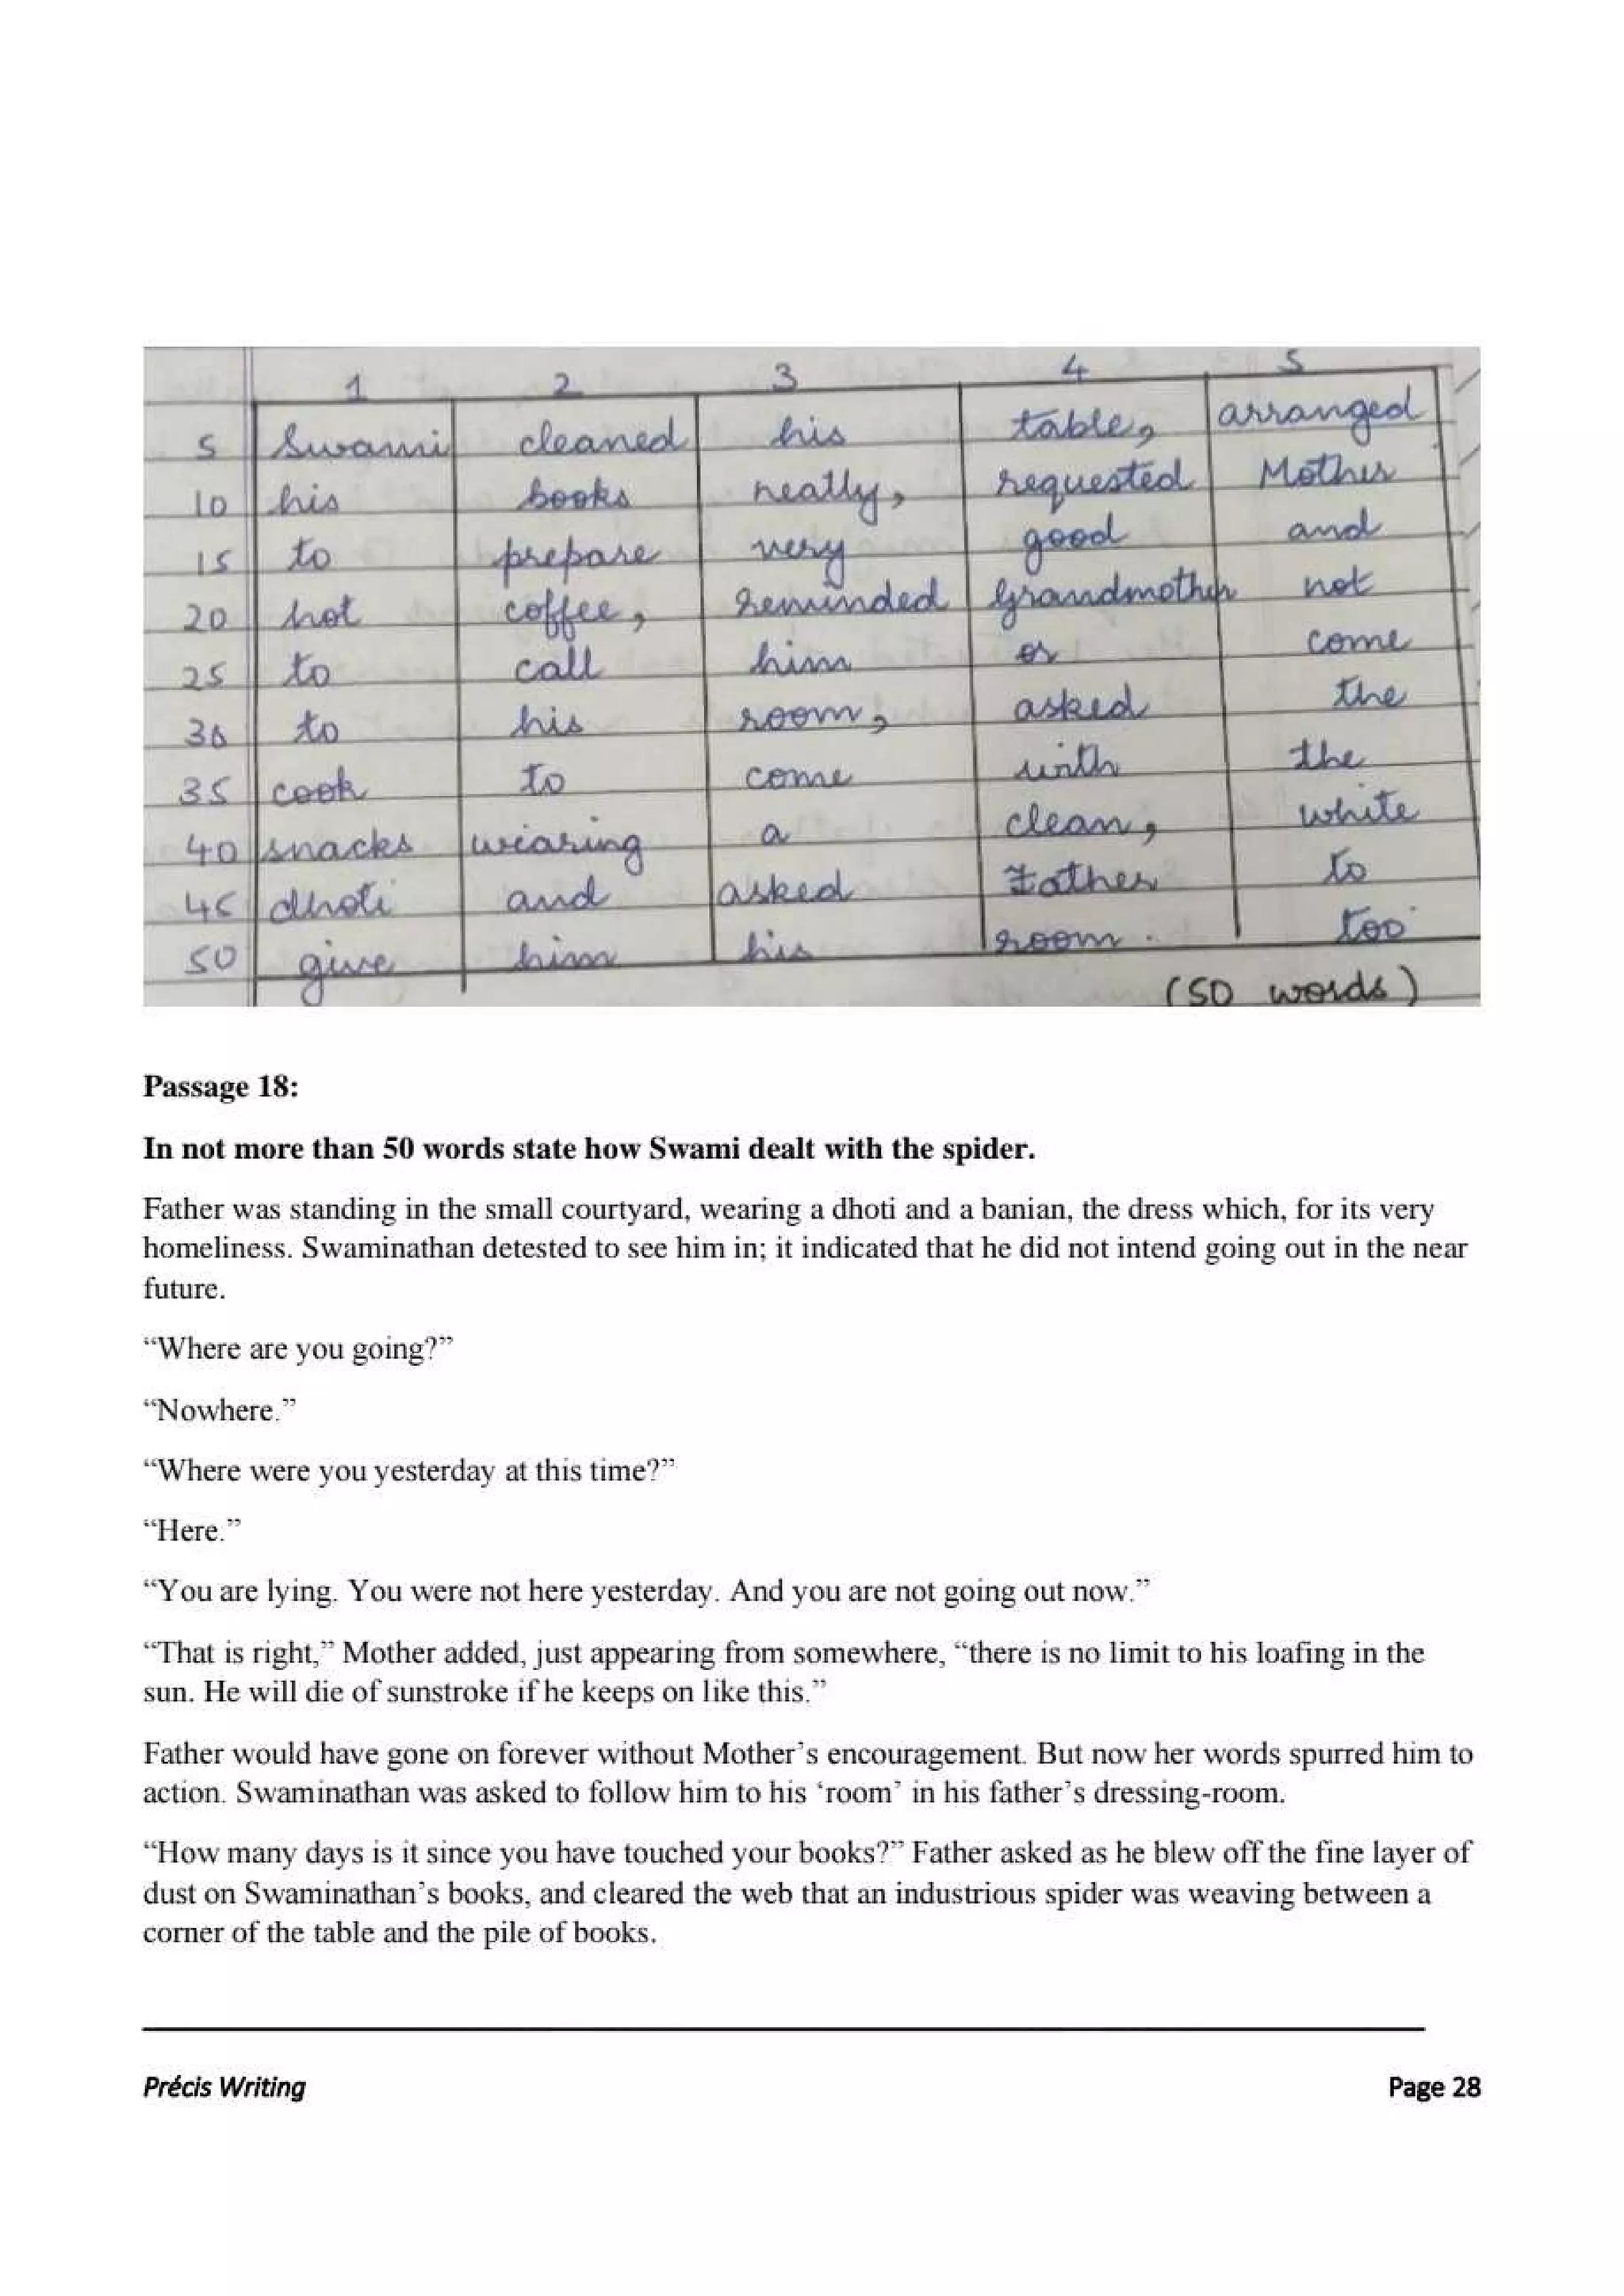 1 2 3 4 5
5 Swami cleaned his table, arranged
10 his books neatly, requested Mother
15 to prepare very good and
20 hot coffee, reminded Grandmother not
25 to call him or come
30 to his room, asked the
35 cook to come with the
40 snacks wearing a clean, white
45 dhoti and asked Father to
50 give him his room too
(50 words)
Passage 18:
In not more than 50 words state how Swami dealt with the spider.
Father was standing in the small courtyard, wearing a dhoti and a banian, the dress which, for its very
homeliness. Swaminathan detested to see him in; it indicated that he did not intend going out in the near
future.
“Where are you going?”
“Nowhere.”
“Where were you yesterday at this time?”
“Here.”
“You are lying. You were not here yesterday. And you are not going out now.”
“That is right,” Mother added, just appearing from somewhere, “there is no limit to his loafing in the
sun. He will die of sunstroke if he keeps on like this.”
Father would have gone on forever without Mother’s encouragement. But now her words spurred him to
action. Swaminathan was asked to follow him to his ‘room’ in his father’s dressing-room.
“How many days is it since you have touched your books?” Father asked as he blew off the fine layer of
dust on Swaminathan’s books, and cleared the web that an industrious spider was weaving between a
corner of the table and the pile of books.
Précis Writing Page 28